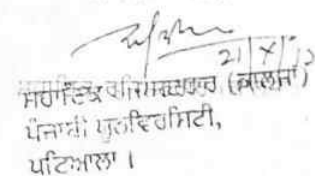 21/X/
ਸਹਾਇਕ ਰਜਿਸਟਰਾਰ (ਕਾਲਜਾਂ)
ਪੰਜਾਬੀ ਯੂਨੀਵਰਸਿਟੀ,
ਪਟਿਆਲਾ ।